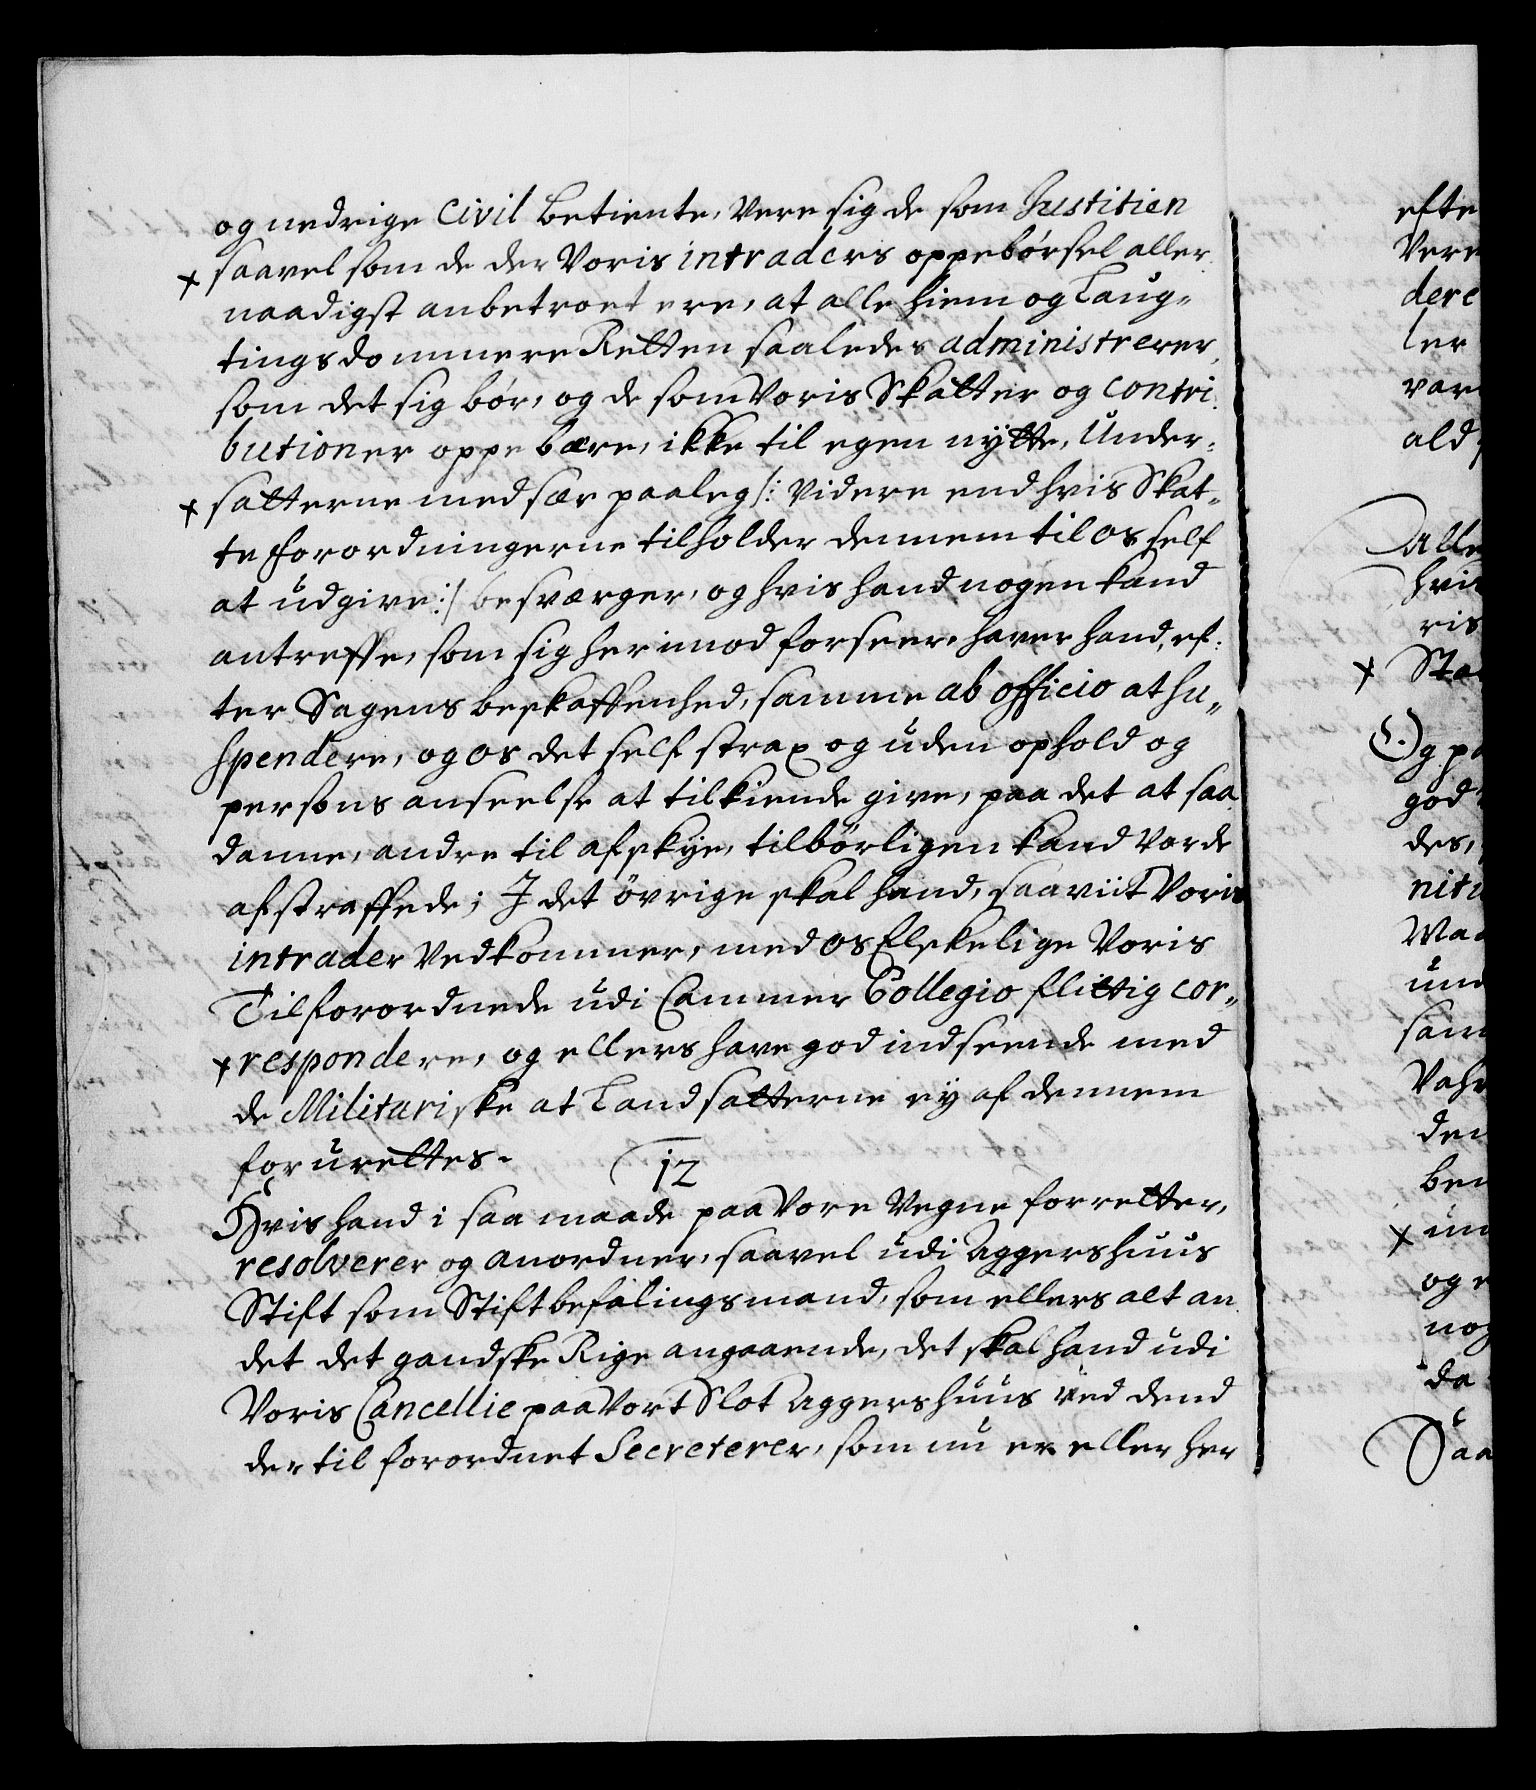 og nedrige Civil betiente, være sig de som Justitien
x saavel som de der Voris intraders oppebørsel aller
naadigst anbetroet ere, at alle hiem og Laug-
tings dommere Retten saaledes administrerer,
som det sig bør, og de som Voris Skatter og contri
butioner oppebære, ikke til egen nytte, Under-
x satterne med sær paaleg /: Videre end hvis Skat-
te forordningerne tilholder dennem til os self
at udgive :/ besværger, og hvis hand nogen kand
antreffe, som sig her imod forseer, haver hand, ef-
ter Sagens beskaffenhed, samme ab officio at su-
spendere, og os det self strax og uden ophold og
persons anseelse at tilkiende give, paa det at saa
danne, andre til afskye, tilbørligen kand vorde
afstraffede; I det øvrige skal hand, saaviit Voris
intrader Vedkommer, med os Elskelige Voris
Tilforordnede udi Cammer Collegio flittig cor-
x respondere, og ellers have god indseende med
de Militariske at Landsatterne ey af dennem
forurettes.
12
Hvis hand i saa maade paa Vore Vegne forretter,
resolverer og anordner, saavel udi Aggershuus
Stift som Stiftbefalingsmand, som ellers alt an
det det gandske Rige angaaende, det skal hand udi
Voris Cancellie paa Vort Slot Aggershuus ved dend
der til forordnet Secreterer, som nu er eller her
efte
Vere
dere
ler
var
ald
Alle
hvis
ris
x Sta
Og pa
god
des,
nitu
Waa
und
sam
Vahr
den
ben
x un
og e
nog
da
Saa